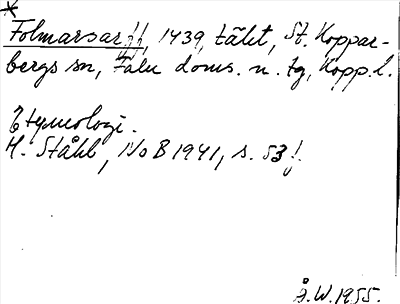 *
Folmarsarff, 1439, täkt, St. Koppar-
bergs sn, Falu doms. n. tg, Kopp. l.
Etymologi.
H. Ståhl, NoB 1941, s. 53!
Å.W. 1955.